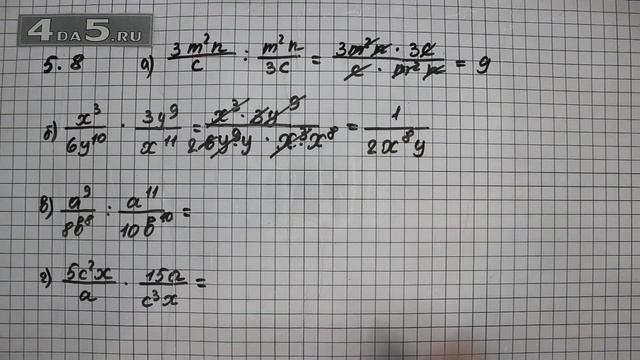 4DA5.RU
5.8 а) 3m²n/c : m²n/3c = 3m²n · 3c/c · m²n = 9
б) x³/6y¹⁰ · 3y⁹/x¹¹ = x³ · 3y⁹/2 6y⁹·y · x³·x⁸ = 1/2x⁸y
в) a⁹/8b⁸ : a¹¹/10b¹⁰ =
г) 5c²x/a · 15a/c³x =